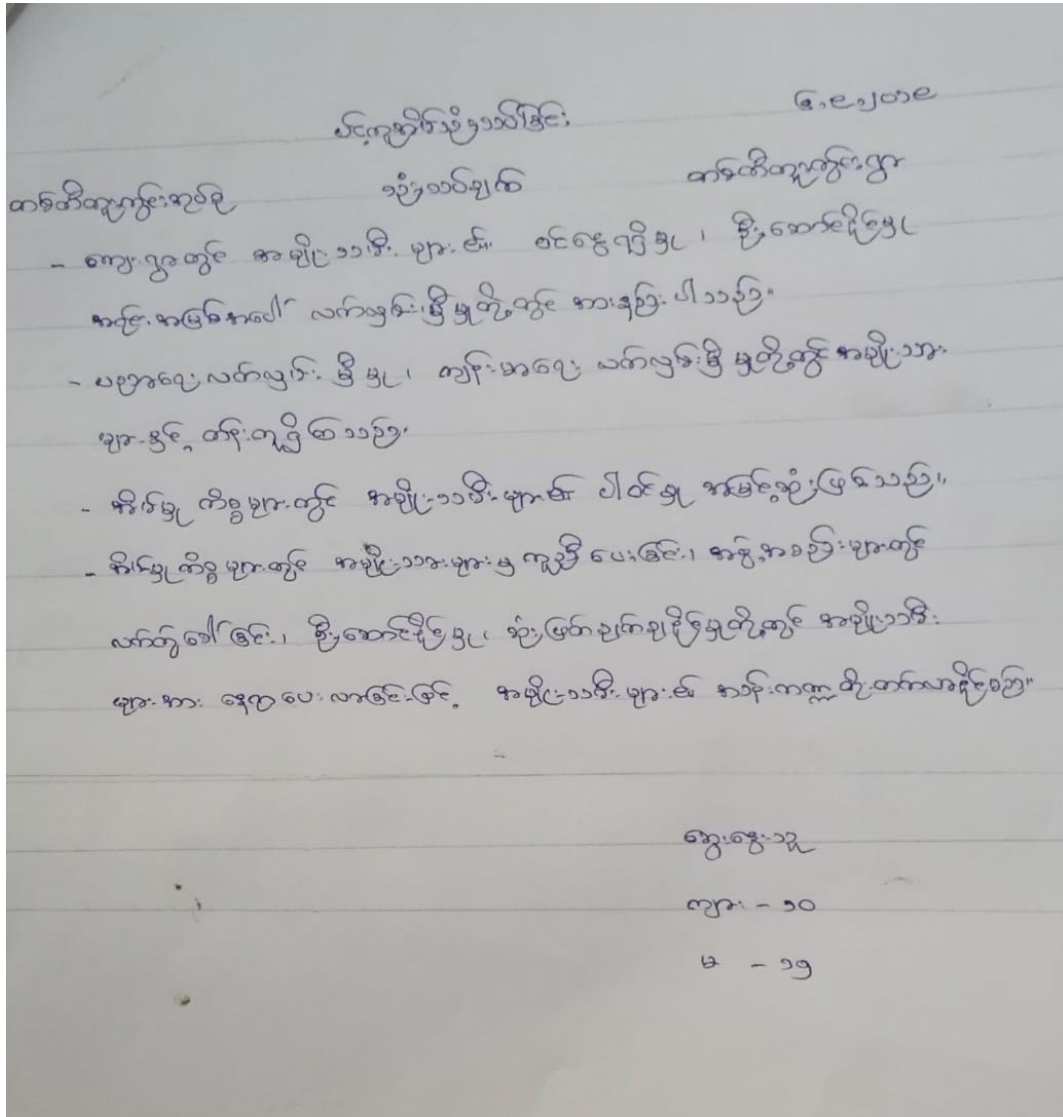 ၆.၉.၂၀၁၉
ပင့်ကူအိမ်သုံးသပ်ခြင်း
တစ်ထီတူကျွန်းအုပ်စု သုံးသပ်ချက် တစ်ထီတူကျွန်းရွာ
- ကျေးရွာတွင် အမျိုးသမီးများ၏ ဝင်ငွေရရှိမှု၊ ဦးဆောင်နိုင်မှု
အရင်းအမြစ်အပေါ် လက်လှမ်းမှီမှုတို့တွင် အားနည်းပါသည်။
- ပညာရေးလက်လှမ်းမှီမှု၊ ကျန်းမာရေးလက်လှမ်းမှီမှုတို့တွင် အမျိုးသား
များနှင့် တန်းတူရှိကြသည်။
- အိမ်မှုကိစ္စများတွင် အမျိုးသမီးများ၏ ပါဝင်မှု အမြင့်ဆုံးဖြစ်သည်။
- အိမ်မှုကိစ္စများတွင် အမျိုးသားများမှ ကူညီပေးခြင်း၊ အဖွဲ့အစည်းများတွင်
လက်တွဲခေါ်ခြင်း၊ ဦးဆောင်နိုင်မှု၊ ဆုံးဖြတ်ချက်ချနိုင်မှုတို့တွင် အမျိုးသမီး
များအား နေရာပေးလာခြင်းဖြင့် အမျိုးသမီးများ၏ အခန်းကဏ္ဍ တိုးတက်လာနိုင်မည်။
ဆွေးနွေးသူ
ကျား - ၁၀
မ - ၁၅